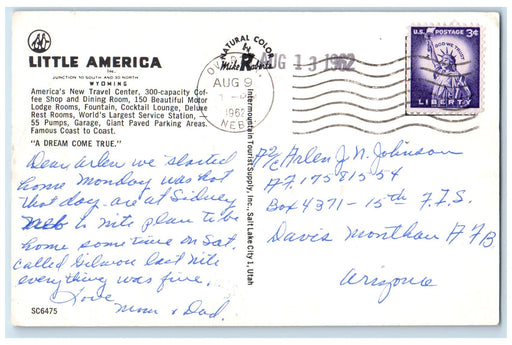 LITTLE AMERICA
Inc.
JUNCTION 30 SOUTH AND 30 NORTH
WYOMING
America's New Travel Center, 300-capacity Cof-
fee Shop and Dining Room, 150 Beautiful Motor
Lodge Rooms, Fountain, Cocktail Lounge, Deluxe
Rest Rooms, World's Largest Service Station, —
55 Pumps, Garage, Giant Paved Parking Areas.
Famous Coast to Coast.
"A DREAM COME TRUE."
Dear Arlen we started
home Monday was hot
that day. are at Sidney
Neb to nite plan to be
home some time on Sat.
called Gilmon last nite
everything was fine.
Love
Mom & Dad.
SC6475
NATURAL COLOR
by
Mike Roberts
Intermountain Tourist Supply, Inc., Salt Lake City 1, Utah
AUG 9
1962
NEBR.
AUG 13 1962
U.S. POSTAGE 3¢
IN GOD WE TRUST
LIBERTY
A/2C Arlen J. N. Johnson
A.F. 17581554
Box 4371 - 15th F.T.S.
Davis Monthan A F B
Arizona